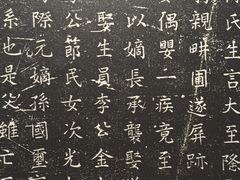 氏生言大至隆
親畊圃遂屏跡
偶嬰一疾竟至
以嫡長承襲娶
娶生員李公金
公節民女次光
際元嫡孫國璽
系也是父雖亡